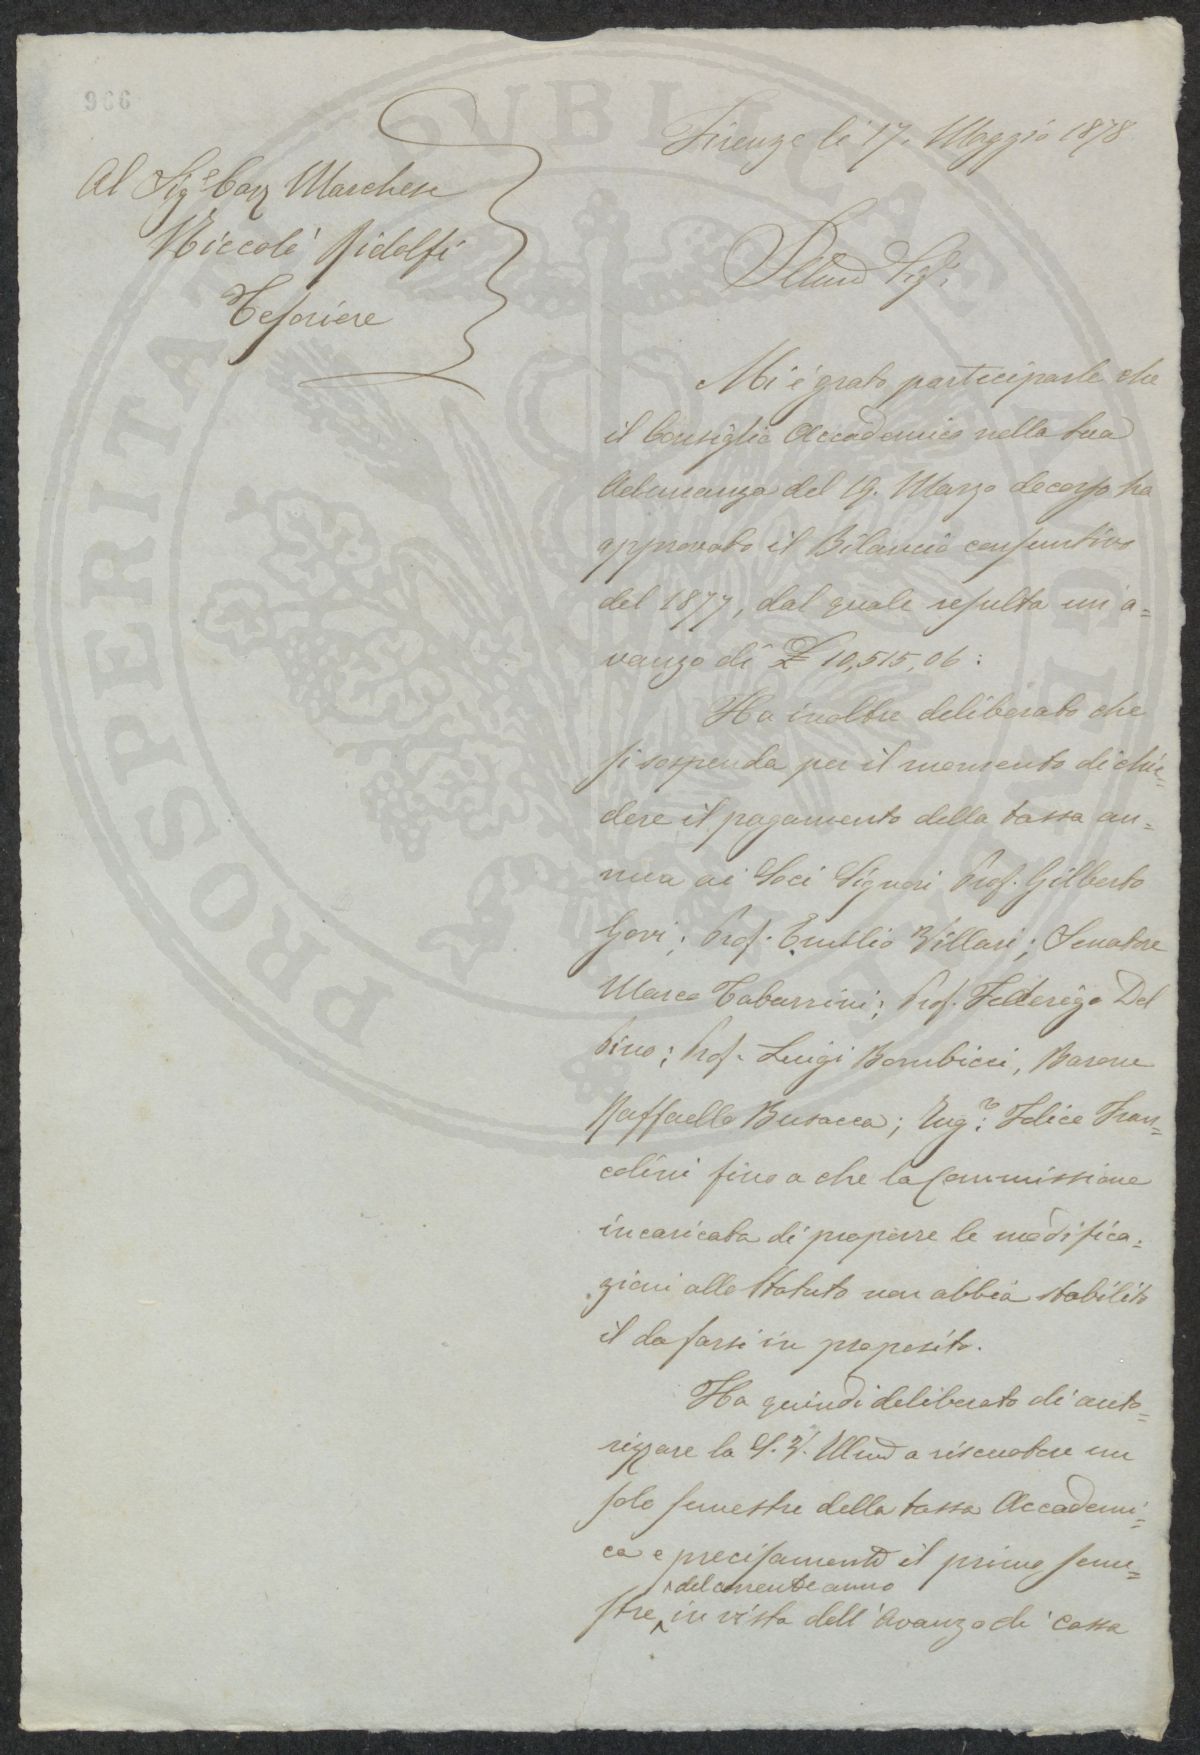 966
Firenze li 17. Maggio 1878
Al Sig.e Cav Marchese
Niccolò Ridolfi
Tesoriere
Illmo Sig.
Mi è grato participarle che
il Consiglio Accademico nella sua
Adunanza del 19. Marzo decorso ha
approvato il Bilancio consuntivo
del 1877, dal quale resulta un a=
vanzo di £ 10,515,06:
Ha inoltre deliberato che
si sospenda per il momento di chie=
dere il pagamento della tassa an=
nua ai Soci Signori Prof. Gilberto
Govi; Prof. Emilio Villari; Senatore
Marco Tabarrini; Prof. Federigo Del
pino; Prof. Luigi Bombicci, Barone
Raffaello Busacca; Ing.e: Felice Fran=
colini fino a che la Commissione
incaricata di proporre le modifica=
zioni allo Statuto non abbia stabilito
il da farsi in proposito.
Ha quindi deliberato di auto=
rizzare la S.V. Illma a riscuotere un
solo semestre della tassa Accademi=
ca e precisamente il primo seme=
del corrente anno
stre in vista dell'Avanzo di Cassa
PROSPERITATI PUBLICAE AUGENDAE